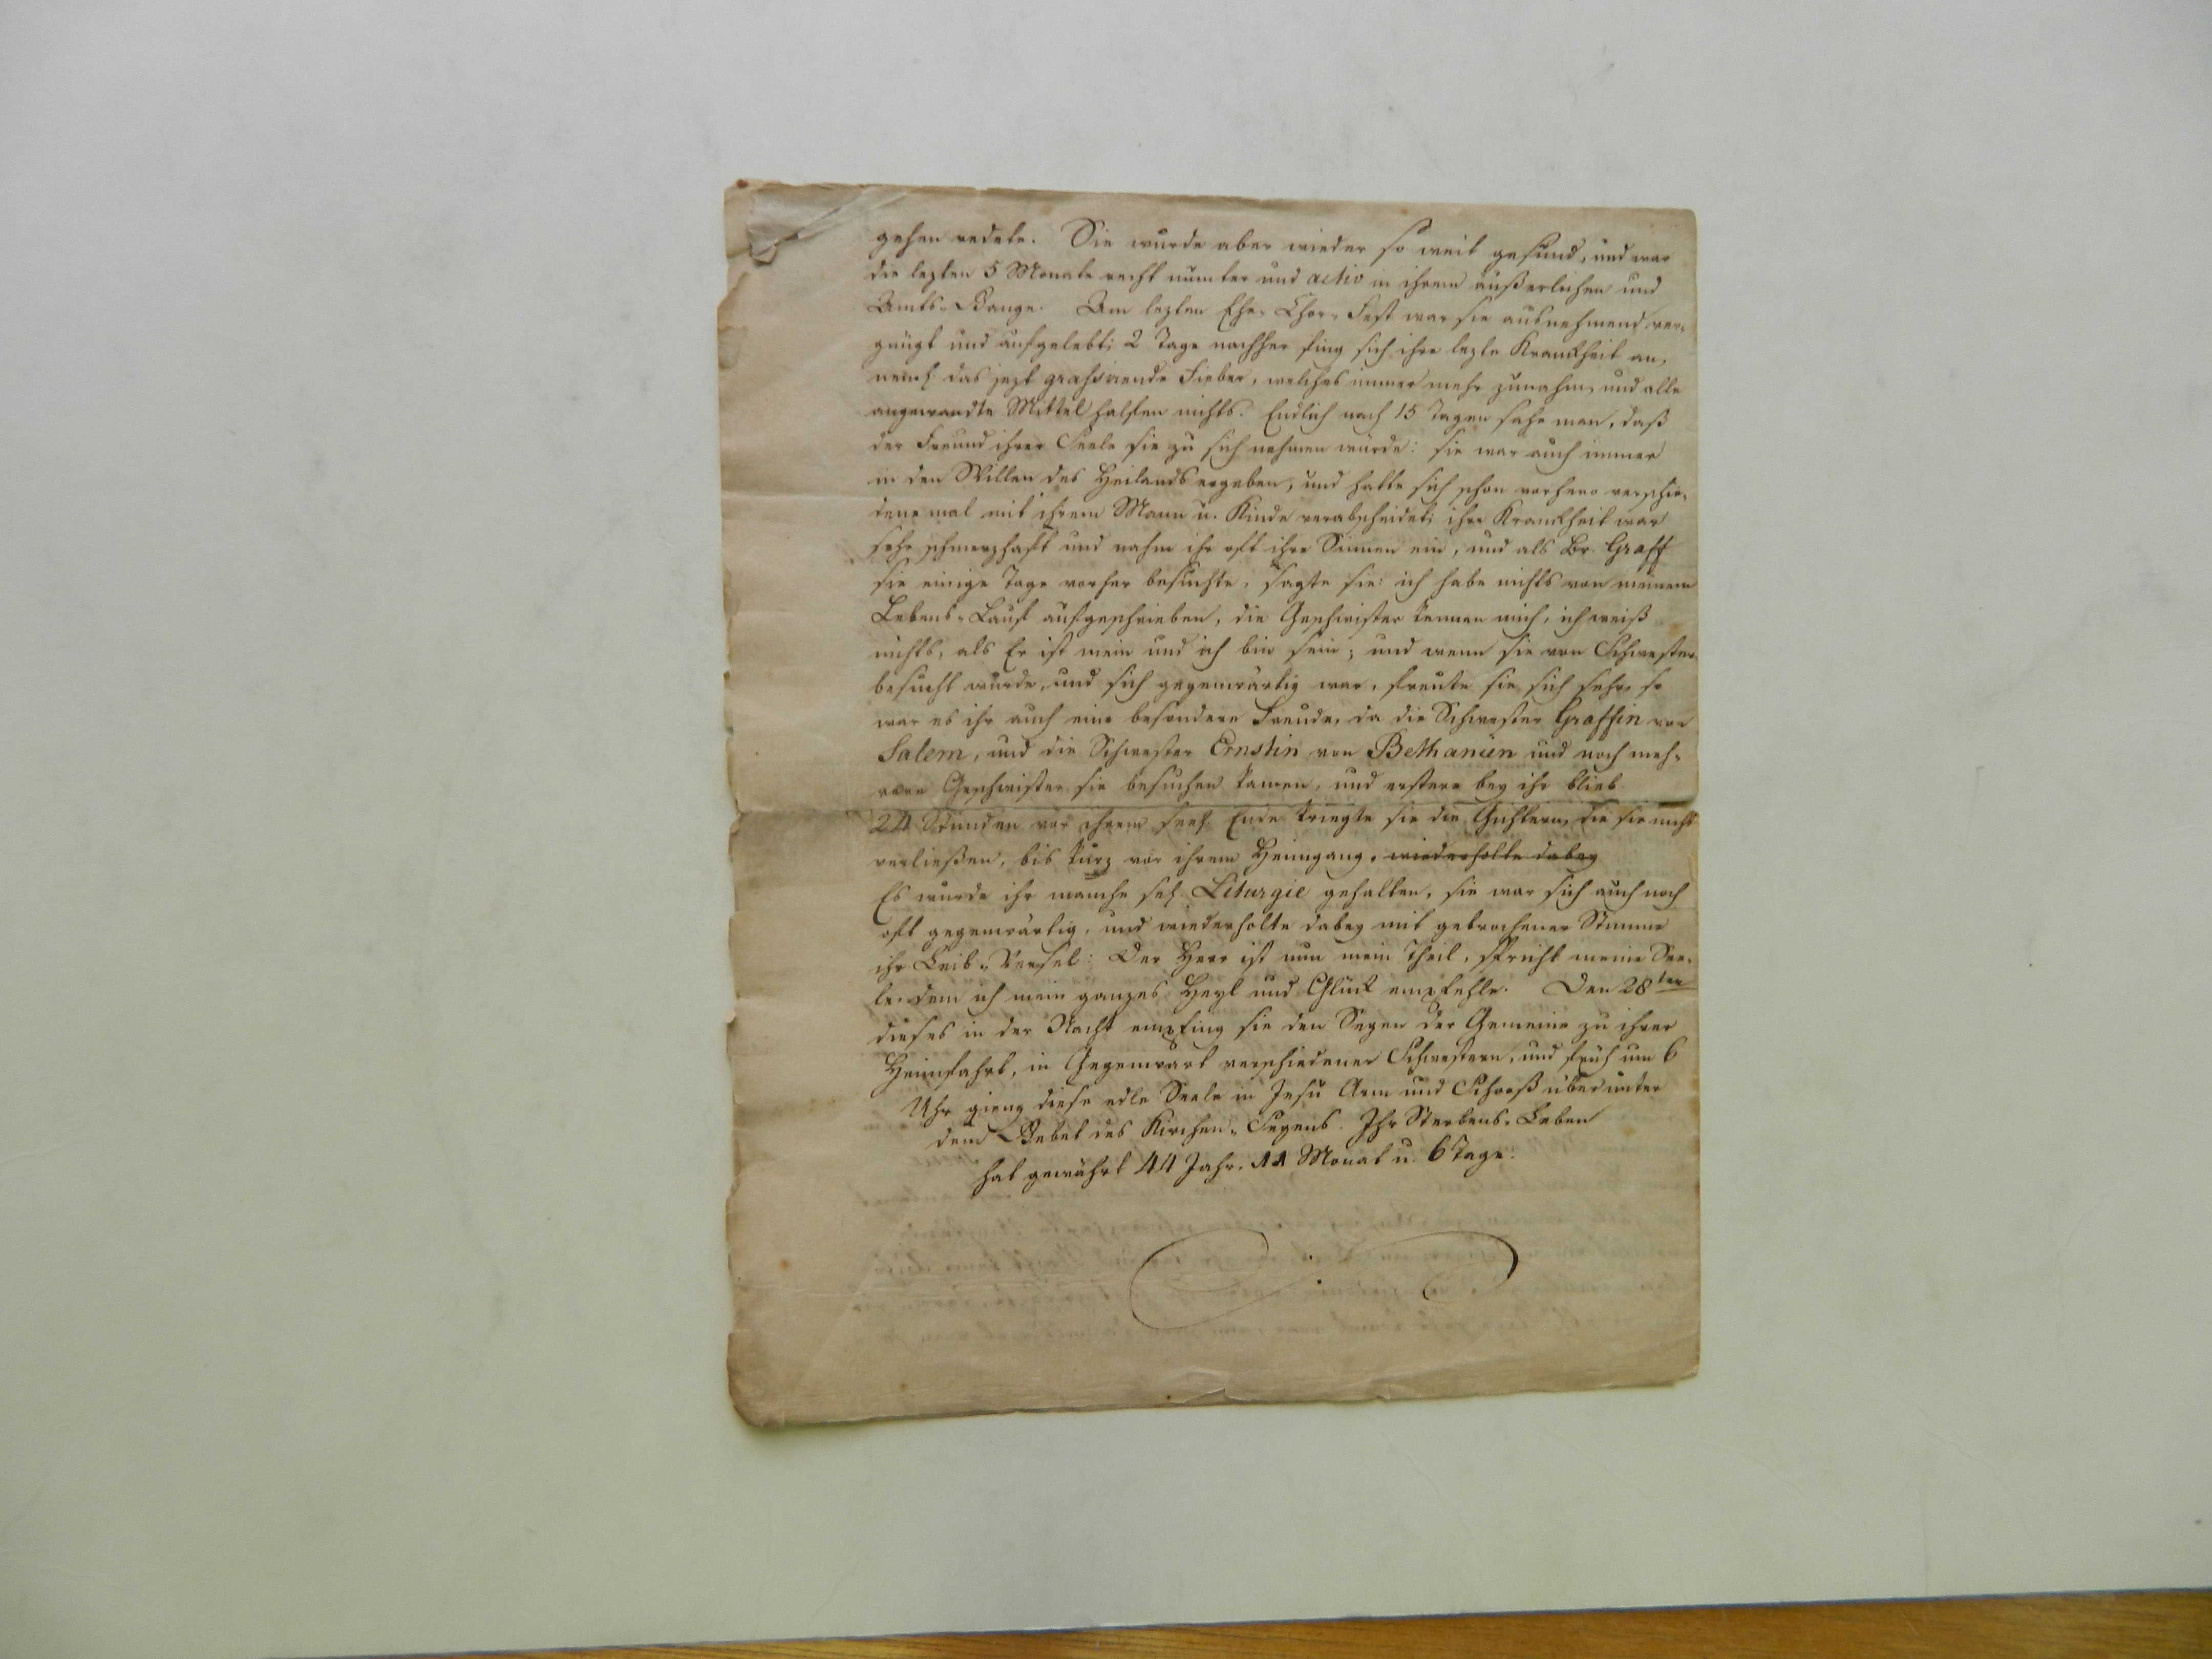 gehen redete. Sie wurde aber wieder so weit gesund, und war
die lezten 5 Monate recht munter und activ in ihrem äußerlichen und
Amts-Gange. Am lezten Ehe-Chor-Fest war sie ausnehmend ver-
gnügt und aufgelebt; 2 Tage nachher fing sich ihre lezte Kranckheit an,
neml. das jezt grassirende Fieber, welches immer mehr zunahm, und alle
angewandte Mittel halfen nichts. Endlich nach 15 Tagen sahe man, daß
der Freund ihrer Seele sie zu sich nehmen würde: sie war auch immer
in den Willen des Heilands ergeben, und hatte sich schon vorhero verschie-
dene mal mit ihrem Mann u. Kinde verabscheidet; ihre Kranckheit war
sehr schmerzhaft und nahm ihr oft ihre Sinnen ein, und als Br. Graff
sie einige Tage vorher besuchte, sagte sie: ich habe nichts von meinem
Lebens-Lauf aufgeschrieben, die Geschwister kennen mich, ich weiß
nichts, als Er ist mein und ich bin sein; und wenn sie von Schwestern
besucht wurde, und sich gegenwärtig war, freute sie sich sehr, so
war es ihr auch eine besondere Freude, da die Schwester Graffin von
Salem, und die Schwester Ernstin von Bethanien und noch meh-
rere Geschwister sie besuchen kamen, und erstere bey ihr blieb.
24 Stunden vor ihrem seel. Ende kriegte sie die Gichtern, die sie nicht
verließen, bis kurz vor ihrem Heimgang. wiederholte dabey
Es wurde ihr manche sel. Liturgie gehalten, sie war sich auch noch
oft gegenwärtig, und wiederholte dabey mit gebrochener Stimme
ihr Leib-Versel: Der Herr ist nun mein Theil, spricht meine See-
le, dem ich mein ganzes Heyl und Glück empfehle. Den 28ten
dieses in der Nacht empfing sie den Segen der Gemeine zu ihrer
Heimfahrt, in Gegenwart verschiedener Schwestern, und früh um 6
Uhr gieng diese edle Seele in Jesu Arm und Schooß über unter
dem Gebet des Kirchen-Segens. Ihr Sterbens-Leben
hat gewährt 44 Jahr. 11 Monat u. 6 Tage.